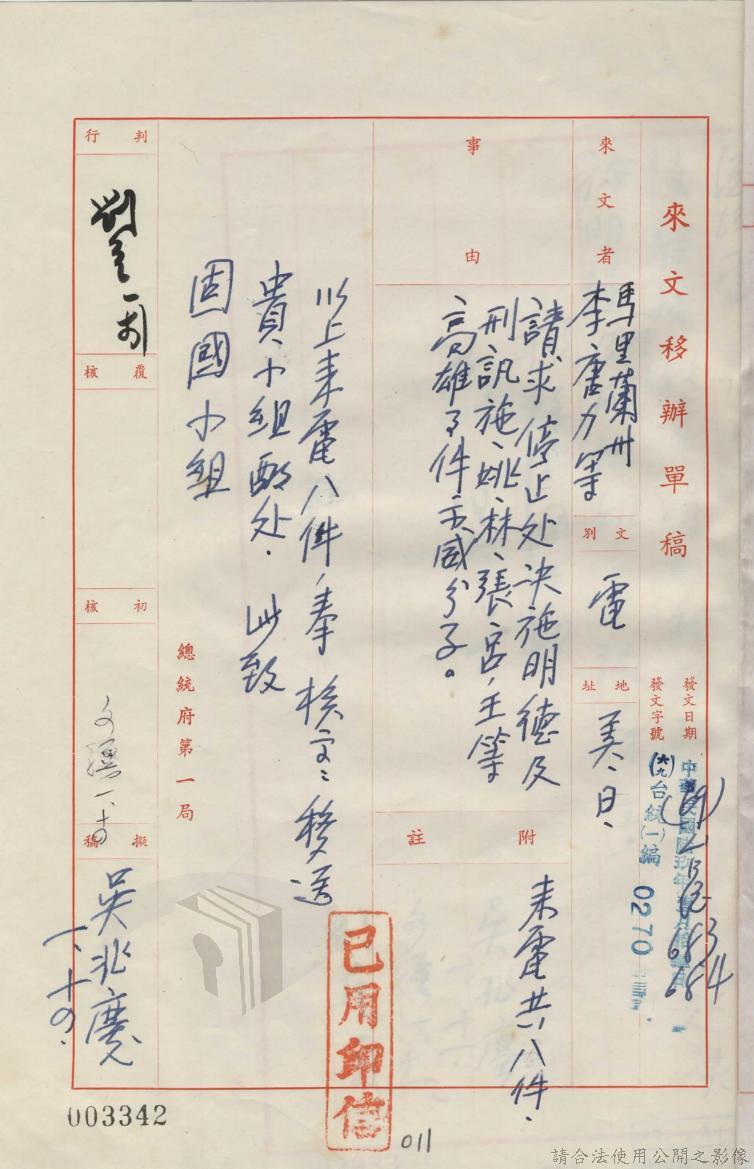 來文移辦單稿
發文日期
中華民國陸玖年壹月拾肆日
發文字號
(六九)台統(一)編 0270
683
684
來文者
馬里蘭州
李唐力等
文別
電
地址
美、日、
事由
請求停止处决施明德及
刑訊施、姚、林、張、呂、王等
高雄事件示威分子。
附註
来電共八件.
以上来電八件,奉 核定:移送
貴小組酌处. 此致
固國小組
總統府第一局
判行
覆核
初核
一、十四
擬稿
吳兆慶
一、十四.
已用印信
003342
011
請合法使用公開之影像